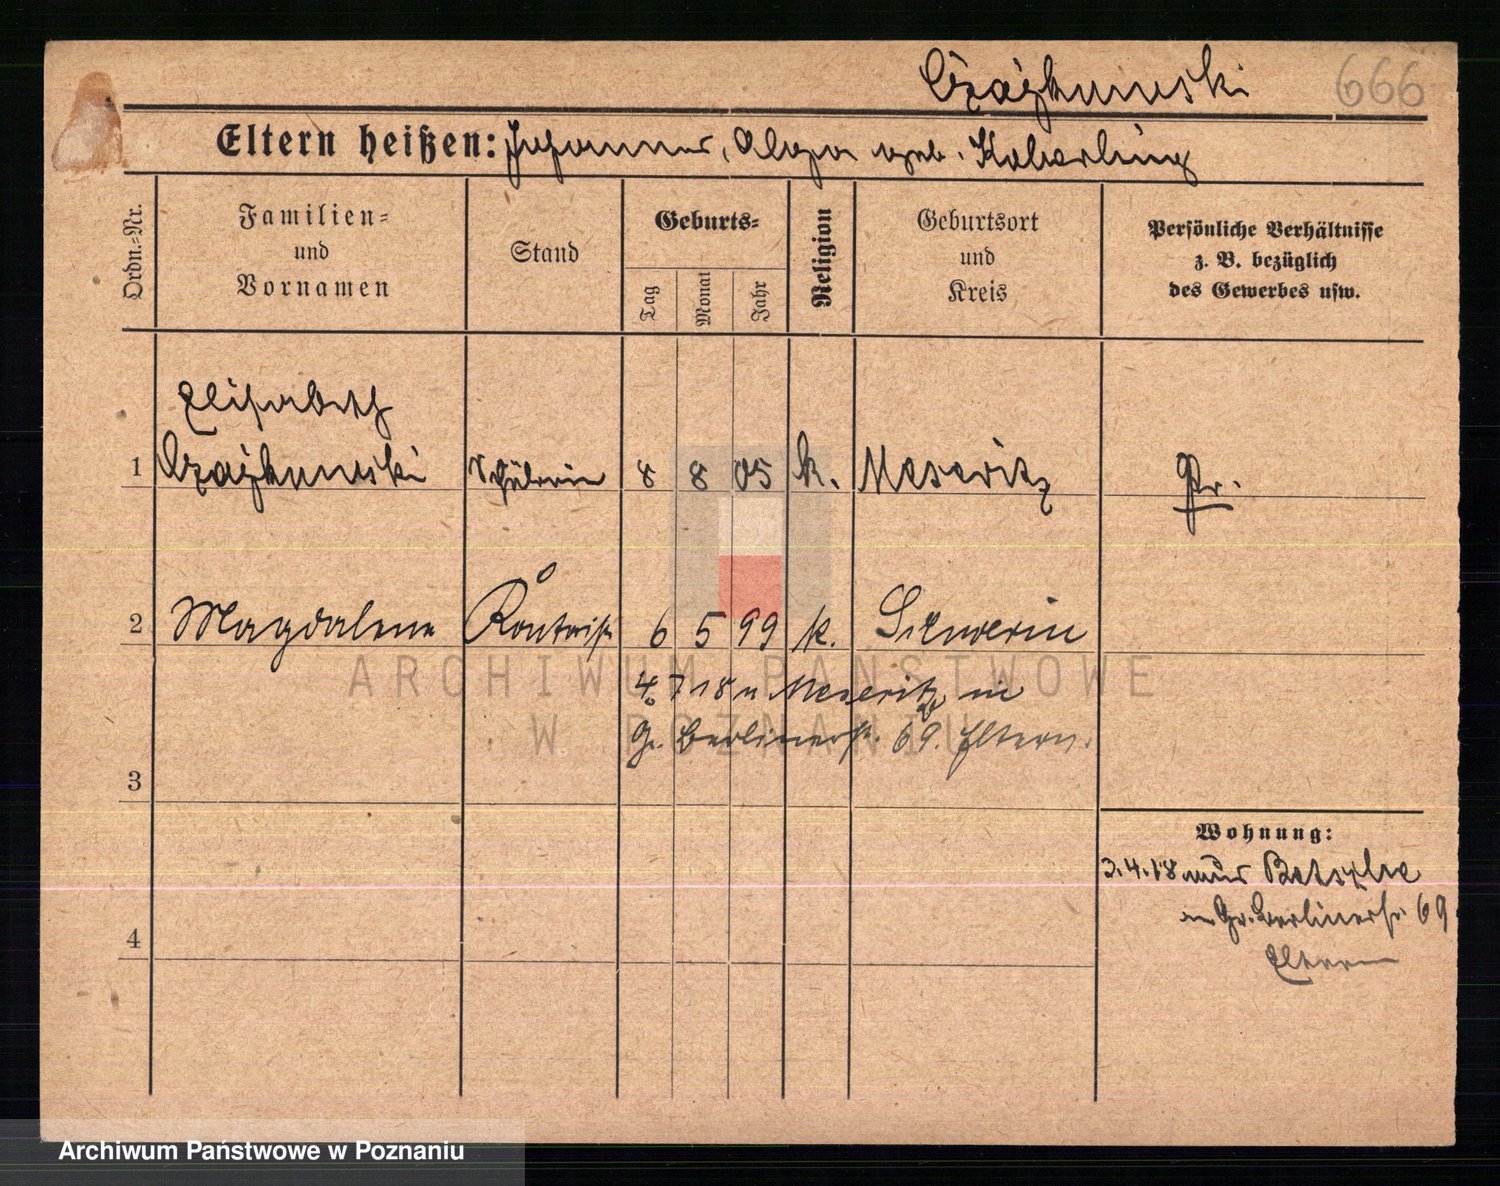 Czajkowski 666
Eltern heißen: Johannes, geb. Koberling
Ordn.=Nr.
Familien=
und
Vornamen
Stand
Geburts=
Tag
Monat
Jahr
Religion
Geburtsort
und
Kreis
Persönliche Verhältnisse
z. B. bezüglich
des Gewerbes usw.
Elisabeth
1 Czajkowski Schülerin 8 8 05 k. Meseritz Pr.
2 Magdalena Kontorist 6 5 99 k. Schwerin
4. 7 18 n Meseritz in
Gr. Berlinerstr. 69. Eltern.
3
Wohnung:
3.4.18 aus Betsche
Gr. Berlinerstr 69
Eltern
4
ARCHIWUM PAŃSTWOWE
W POZNANIU
Archiwum Państwowe w Poznaniu